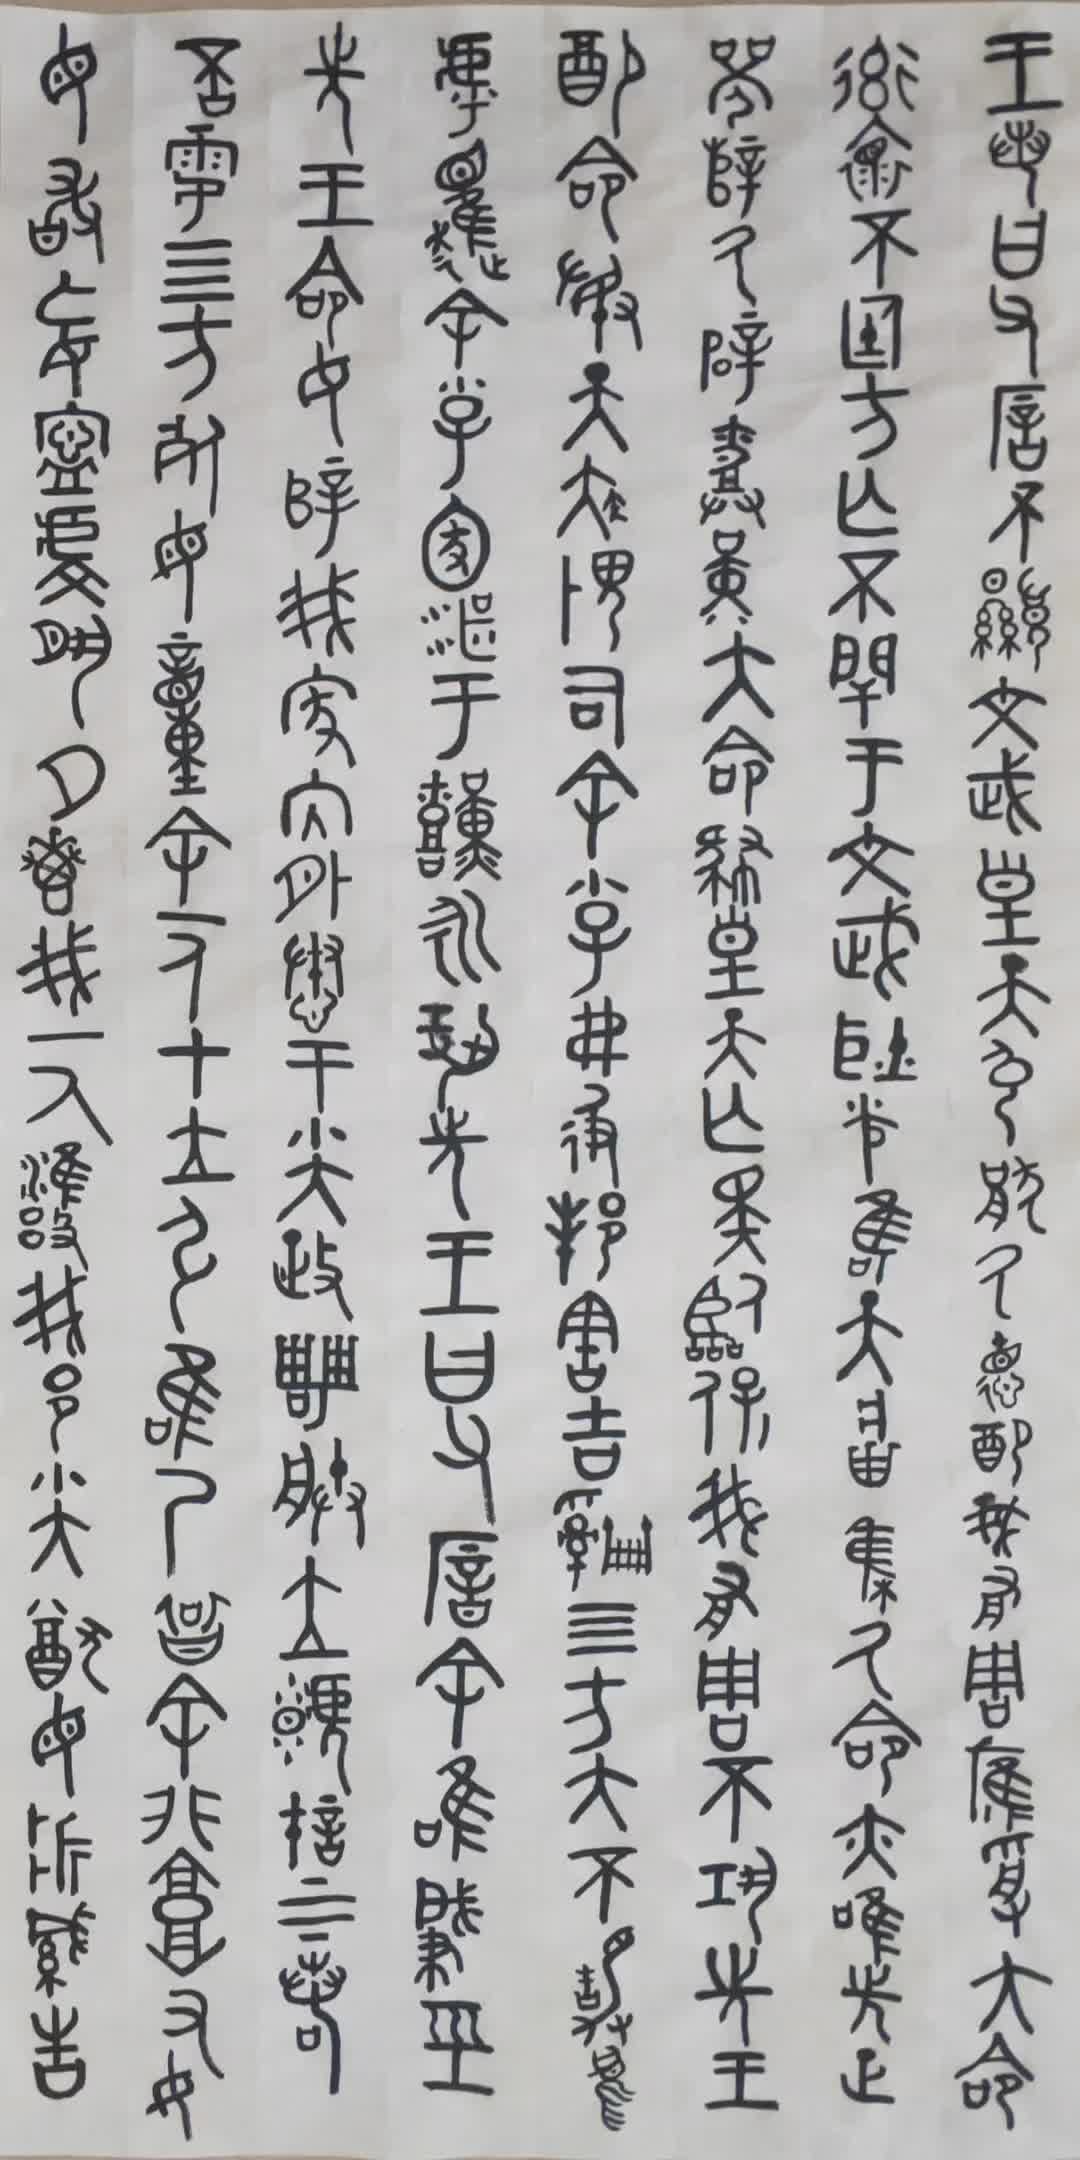 王若曰父厝不顯文武皇天引猒氒德配我有周膺受大命
率褱不廷方亡不閈于文武耿光唯天㽙集氒命亦唯先正
辥氒辟堇大命肄皇天亡斁臨保我有周不巩先王
配命敃天疾畏司余小子弗彶邦害吉四方大不靜烏
虖趯余小子圂湛于囏永巩先王曰父厝余唯肇巠
先王命女辥我家內外惷于小大政甹朕立虩許上下若
否雩四方死母童余一人才立弘唯乃智余非庸又女
母敢妄寧虔夙夕叀我一人雝我邦小大猷母折緘告